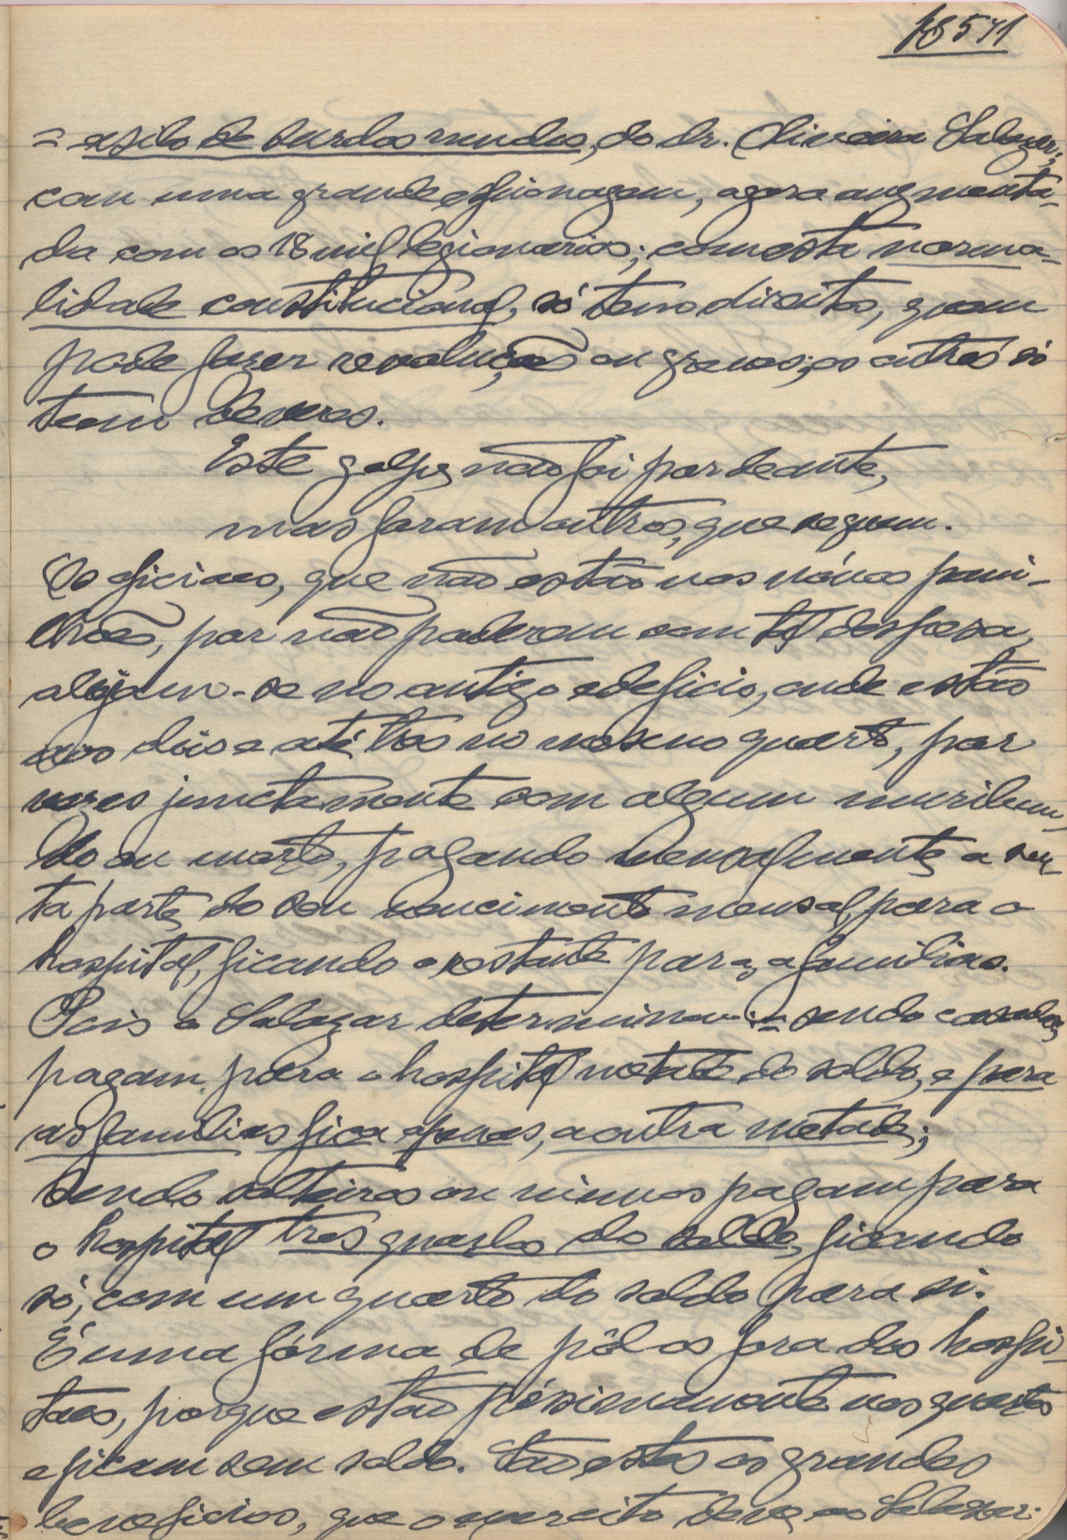 18571
= asilo de surdos mudos, do dr. Oliveira Salazar;
com uma grande espionagem, agora augmenta-
da com os 18 mil legionarios; com esta norma-
lidade constitucional, só tem direitos, quem
pode fazer revoluções ou greves; os outros só
tem deveres.
Este golpe não foi por deante,
mas foram outros, que seguem.
Os oficiaes, que não estão nos nóvos pavi-
lhões, por não poderem com tal despesa,
alojam-se no antigo edeficio, onde estão
aos dois e até tres no mesmo quarto, por
vezes junctamente com algum muribun-
do ou morto, pagando mensalmente a sex-
ta parte do seu vencimento mensal, para o
hospital, ficando o restante para a familias.
Pois o Salazar determinou:= sendo casados,
pagam para o hospital metade do soldo, e para
as familias fica apenas, a outra metade;
sendo solteiros ou viuvos pagam para
o hospital tres quartos do soldo, ficando
só, com um quarto do soldo para si.
É uma fórma de pôl os fora dos hospi-
taes, porque estão péssimamente nos quartos
e ficam sem soldo. São estes os grandes
beneficios, que o exercito deve ao Salazar.